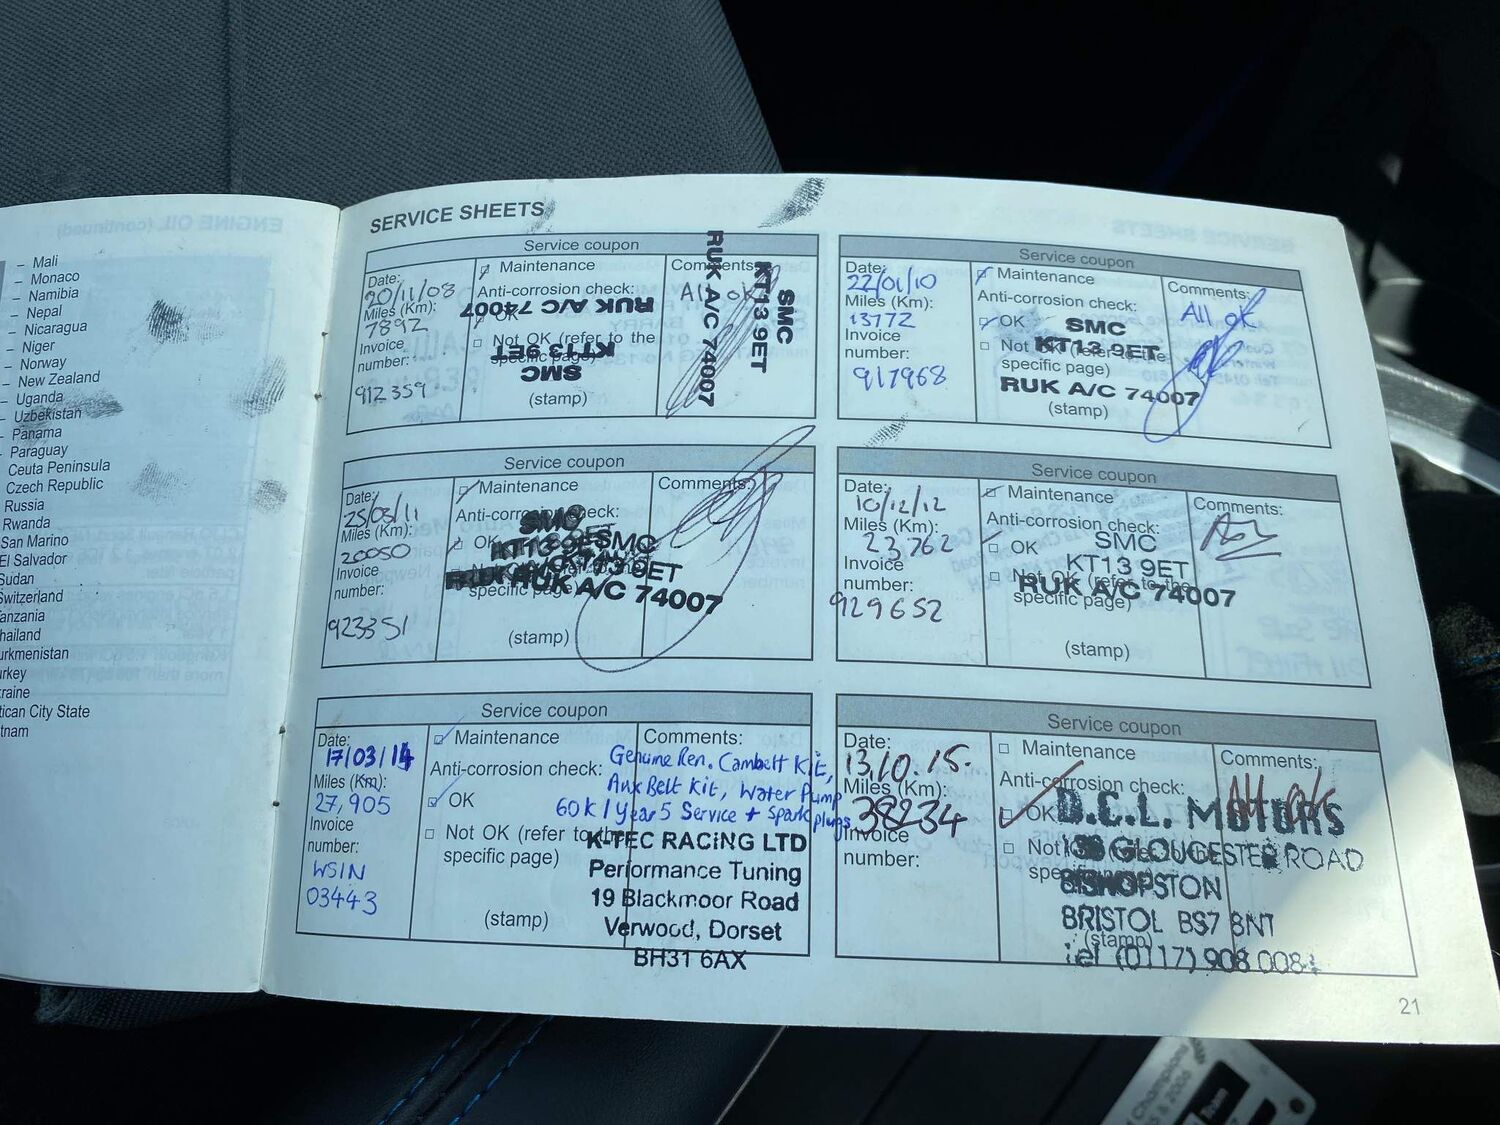 – Mali
– Monaco
– Namibia
– Nepal
– Nicaragua
– Niger
– Norway
– New Zealand
– Uganda
– Uzbekistan
– Panama
– Paraguay
Ceuta Peninsula
Czech Republic
Russia
Rwanda
San Marino
El Salvador
Sudan
Switzerland
anzania
hailand
urkmenistan
urkey
kraine
tican City State
tnam
SERVICE SHEETS
Service coupon
Date:
20/11/08
Miles (Km):
7892
Invoice
number:
912359
Maintenance
Anti-corrosion check:
OK
Not OK (refer to the
specific page)
(stamp)
SMC
KT13 9ET
RUK A/C 74007
Comments:
All ok
SMC
KT13 9ET
RUK A/C 74007
Service coupon
Date:
22/01/10
Miles (Km):
13772
Invoice
number:
917968
Maintenance
Anti-corrosion check:
OK
Not OK (refer to the
specific page)
SMC
KT13 9ET
RUK A/C 74007
(stamp)
Comments:
All ok
Service coupon
Date:
25/03/11
Miles (Km):
20050
Invoice
number:
923351
Maintenance
Anti-corrosion check:
OK
specific page)
SMC
KT13 9ET
RUK A/C 74007
(stamp)
Comments:
Service coupon
Date:
10/12/12
Miles (Km):
23,762
Invoice
number:
929652
Maintenance
Anti-corrosion check:
OK
Not OK (refer to the
specific page)
SMC
KT13 9ET
RUK A/C 74007
(stamp)
Comments:
Service coupon
Date:
17/03/14
Miles (Km):
27,905
Invoice
number:
WSIN
03443
Maintenance
Anti-corrosion check:
OK
Not OK (refer to the
specific page)
(stamp)
Comments:
Genuine Ren. Cambelt Kit,
Aux Belt Kit, Water Pump
60K / Year 5 Service + Spark plugs
K-TEC RACING LTD
Performance Tuning
19 Blackmoor Road
Verwood, Dorset
BH31 6AX
Service coupon
Date:
13.10.15.
Miles (Km):
38234
Invoice
number:
Maintenance
Anti-corrosion check:
OK
Not
(stamp)
Comments:
All ok
D.C.L. MOTORS
GLOUCESTER ROAD
BISHOPSTON
BRISTOL BS7 8NT
Tel (0117) 908 008
21